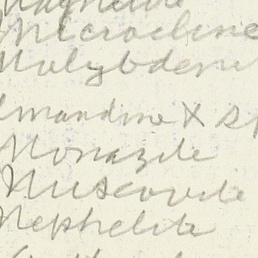 Magnetite
Microcline
Molybdeni
lmandine X Sp
Monazite
Muscovite
Nephelite